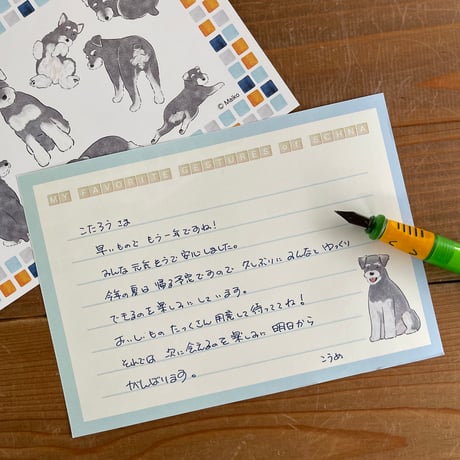 © Maiko
MY FAVORITE GESTURES OF SCHNA
こたろう さま
早いもので もう一年ですね!
みんな元気そうで安心しました。
今年の夏は 帰る予定ですので 久しぶりに みんなと ゆっくり
できるのを楽しみにしています。
おいしいもの たっくさん 用意して待っててね!
それでは 次に会えるのを楽しみに 明日から
がんばります。
こうめ